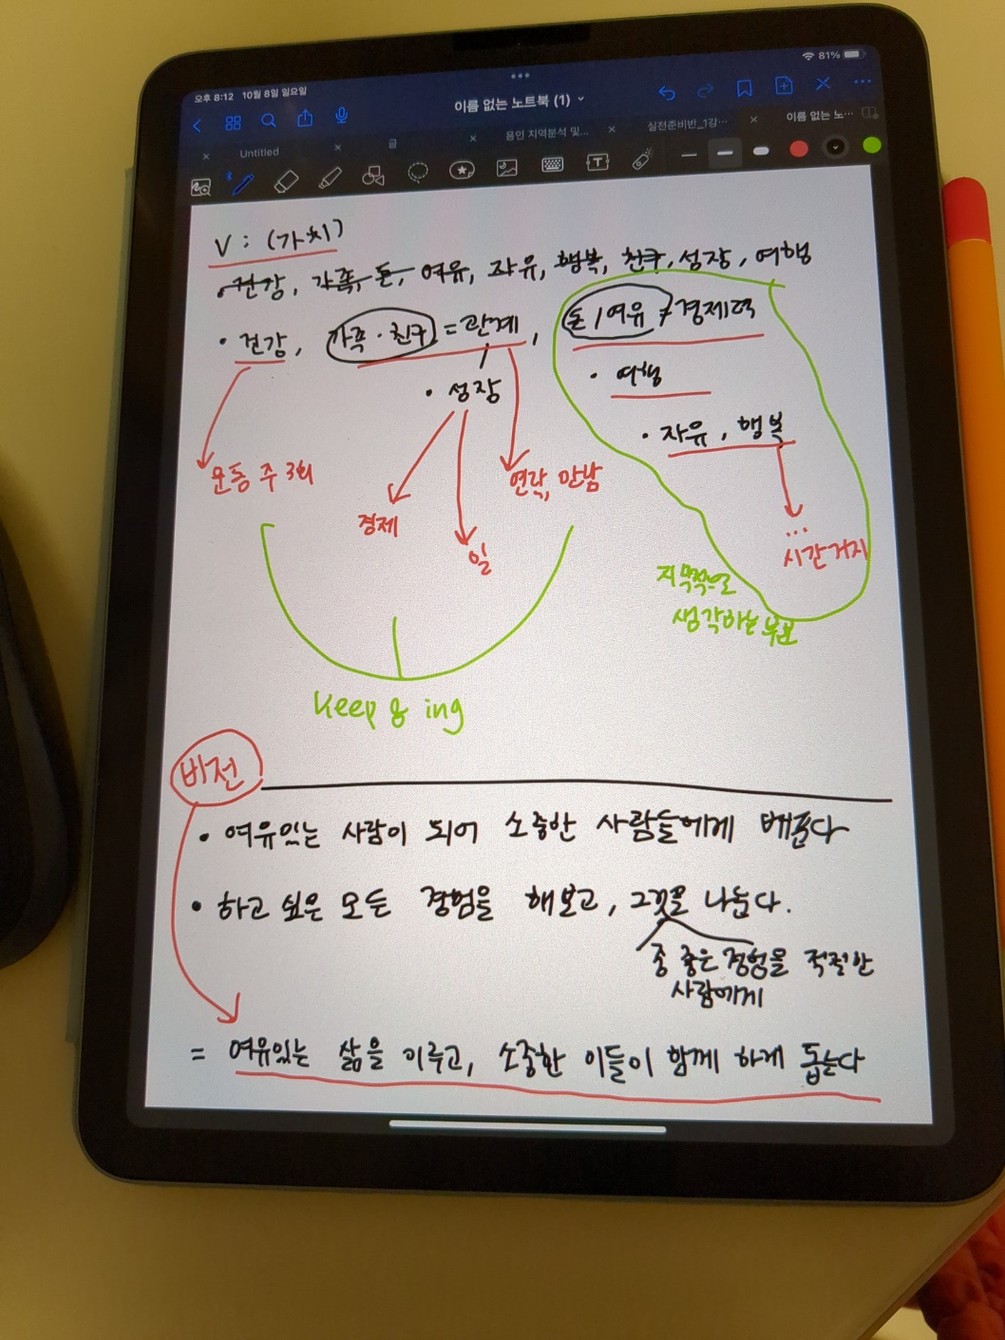 오후 8:12 10월 8일 일요일
81%
이름 없는 노트북 (1)
Untitled
글
용인 지역분석 및...
실전준비반_1강...
이름 없는 노...
V : (가치)
건강, 가족, 돈, 여유, 자유, 행복, 친구, 성장, 여행
· 건강, 가족·친구 = 관계, 돈/여유 ≠ 경제력
· 성장
· 여행
· 자유, 행복
운동 주 3회
경제
일
연락, 만남
...
시간거지
생각하는
keep ing
비전
· 여유있는 사람이 되어 소중한 사람들에게 베푼다
· 하고 싶은 모든 경험을 해보고, 그것을 나눈다.
좋은 경험을 적절한
사람에게
= 여유있는 삶을 이루고, 소중한 이들이 함께 하게 돕는다